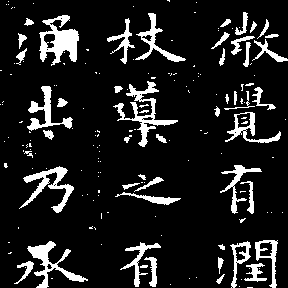 微覺有潤
杖導之有
涌出乃承